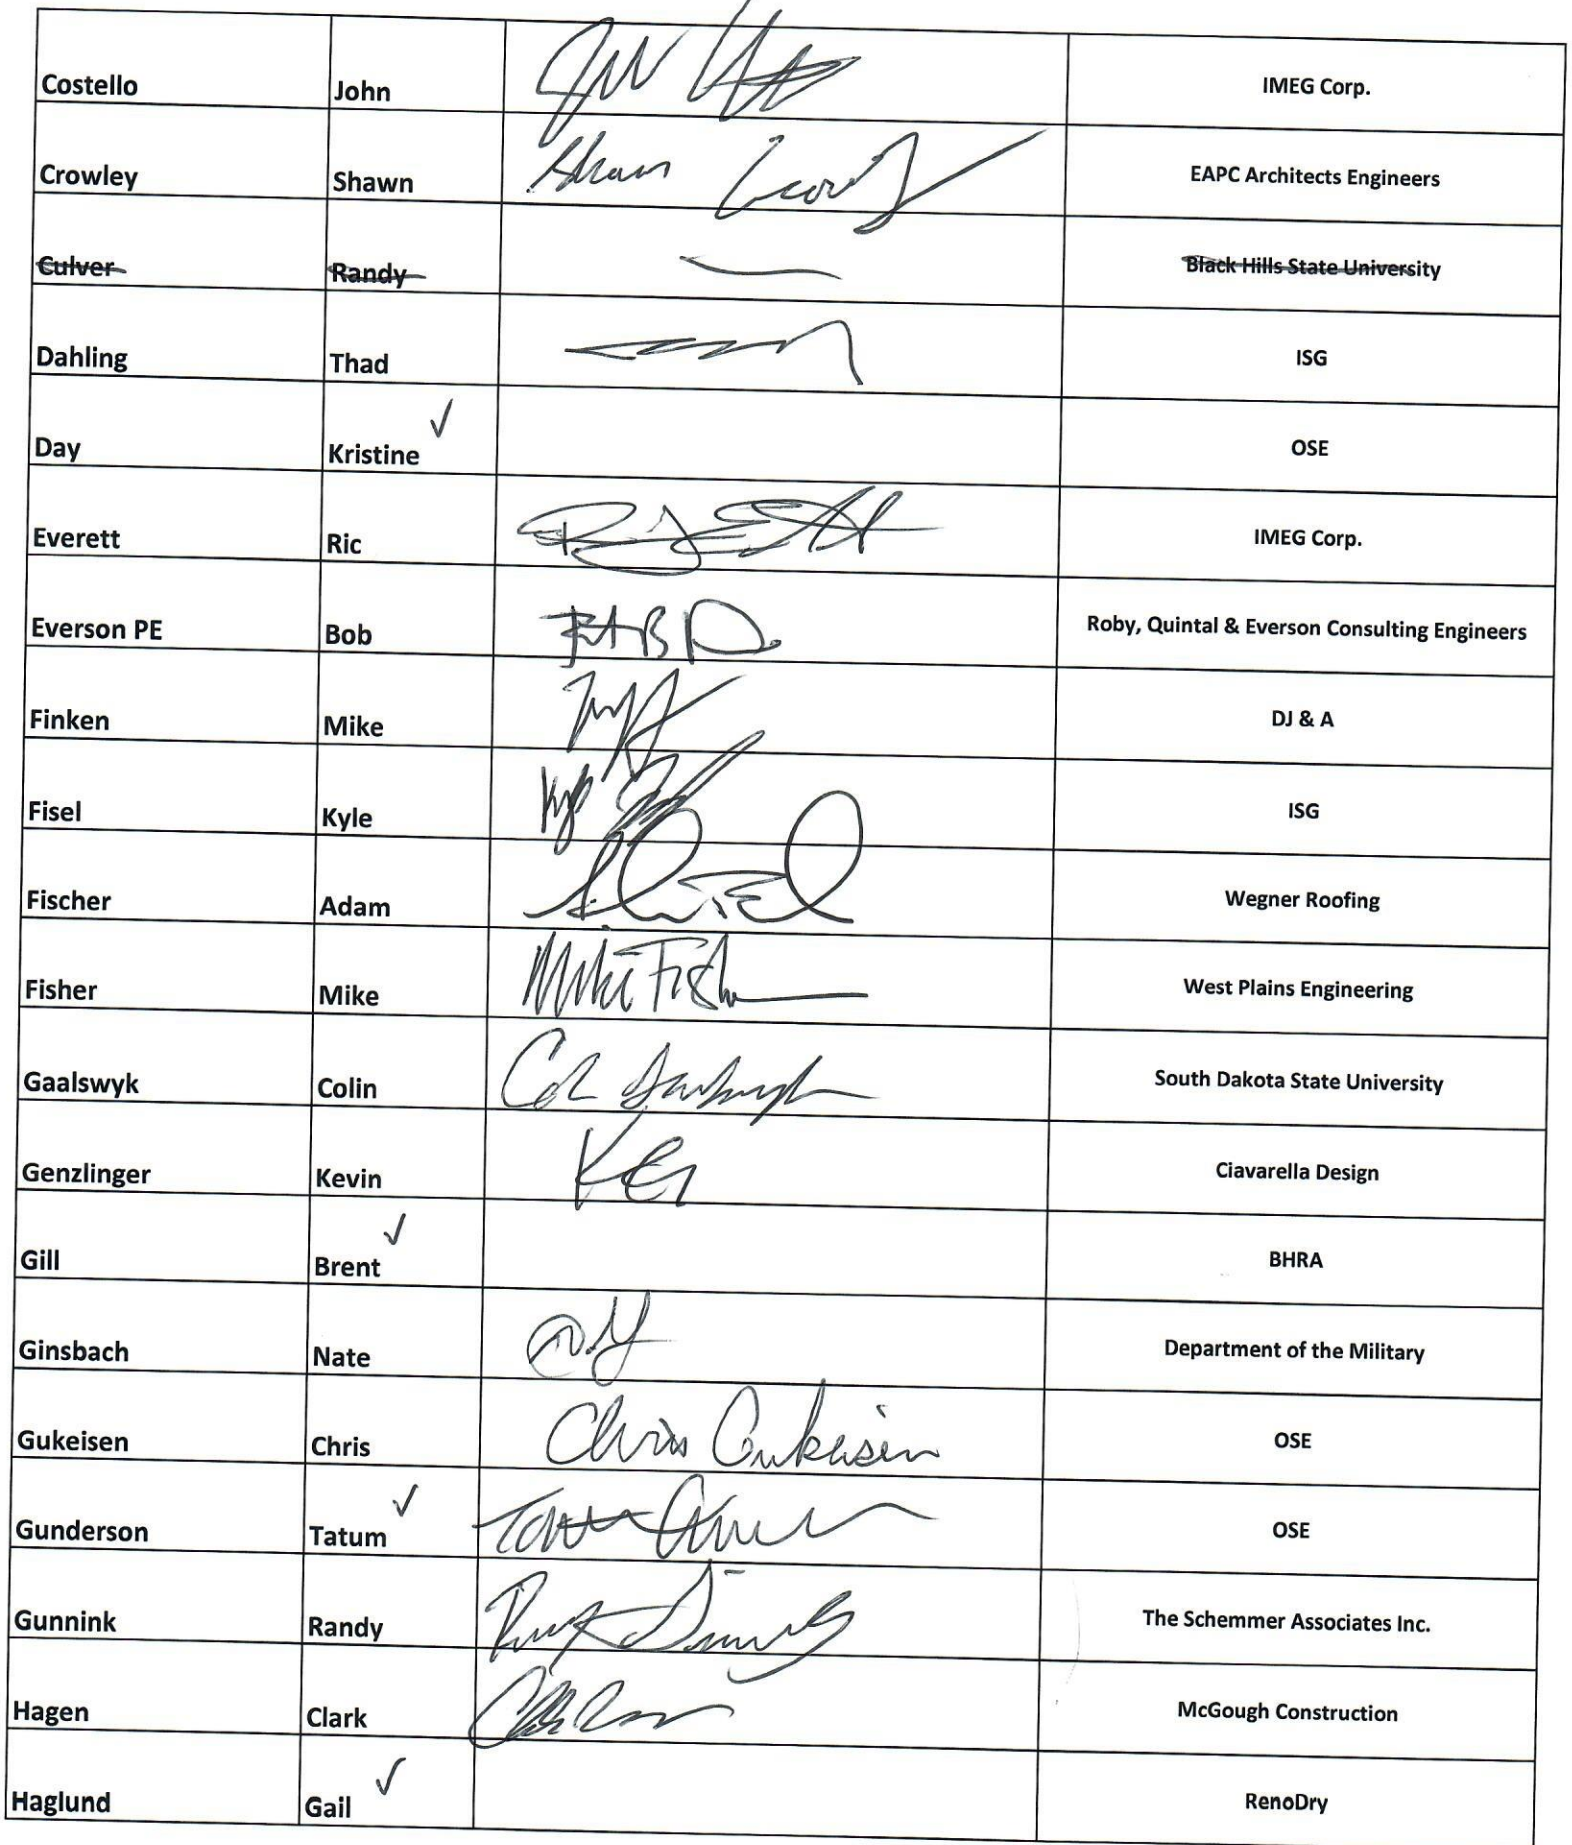 Costello John IMEG Corp.
Crowley Shawn Shawn Crowley EAPC Architects Engineers
Culver Randy Black Hills State University
Dahling Thad ISG
Day Kristine ✓ OSE
Everett Ric IMEG Corp.
Everson PE Bob Roby, Quintal & Everson Consulting Engineers
Finken Mike DJ & A
Fisel Kyle ISG
Fischer Adam Wegner Roofing
Fisher Mike Mike Fish West Plains Engineering
Gaalswyk Colin South Dakota State University
Genzlinger Kevin Ciavarella Design
Gill Brent ✓ BHRA
Ginsbach Nate Department of the Military
Gukeisen Chris Chris Gukeisen OSE
Gunderson Tatum ✓ OSE
Gunnink Randy The Schemmer Associates Inc.
Hagen Clark McGough Construction
Haglund Gail ✓ RenoDry